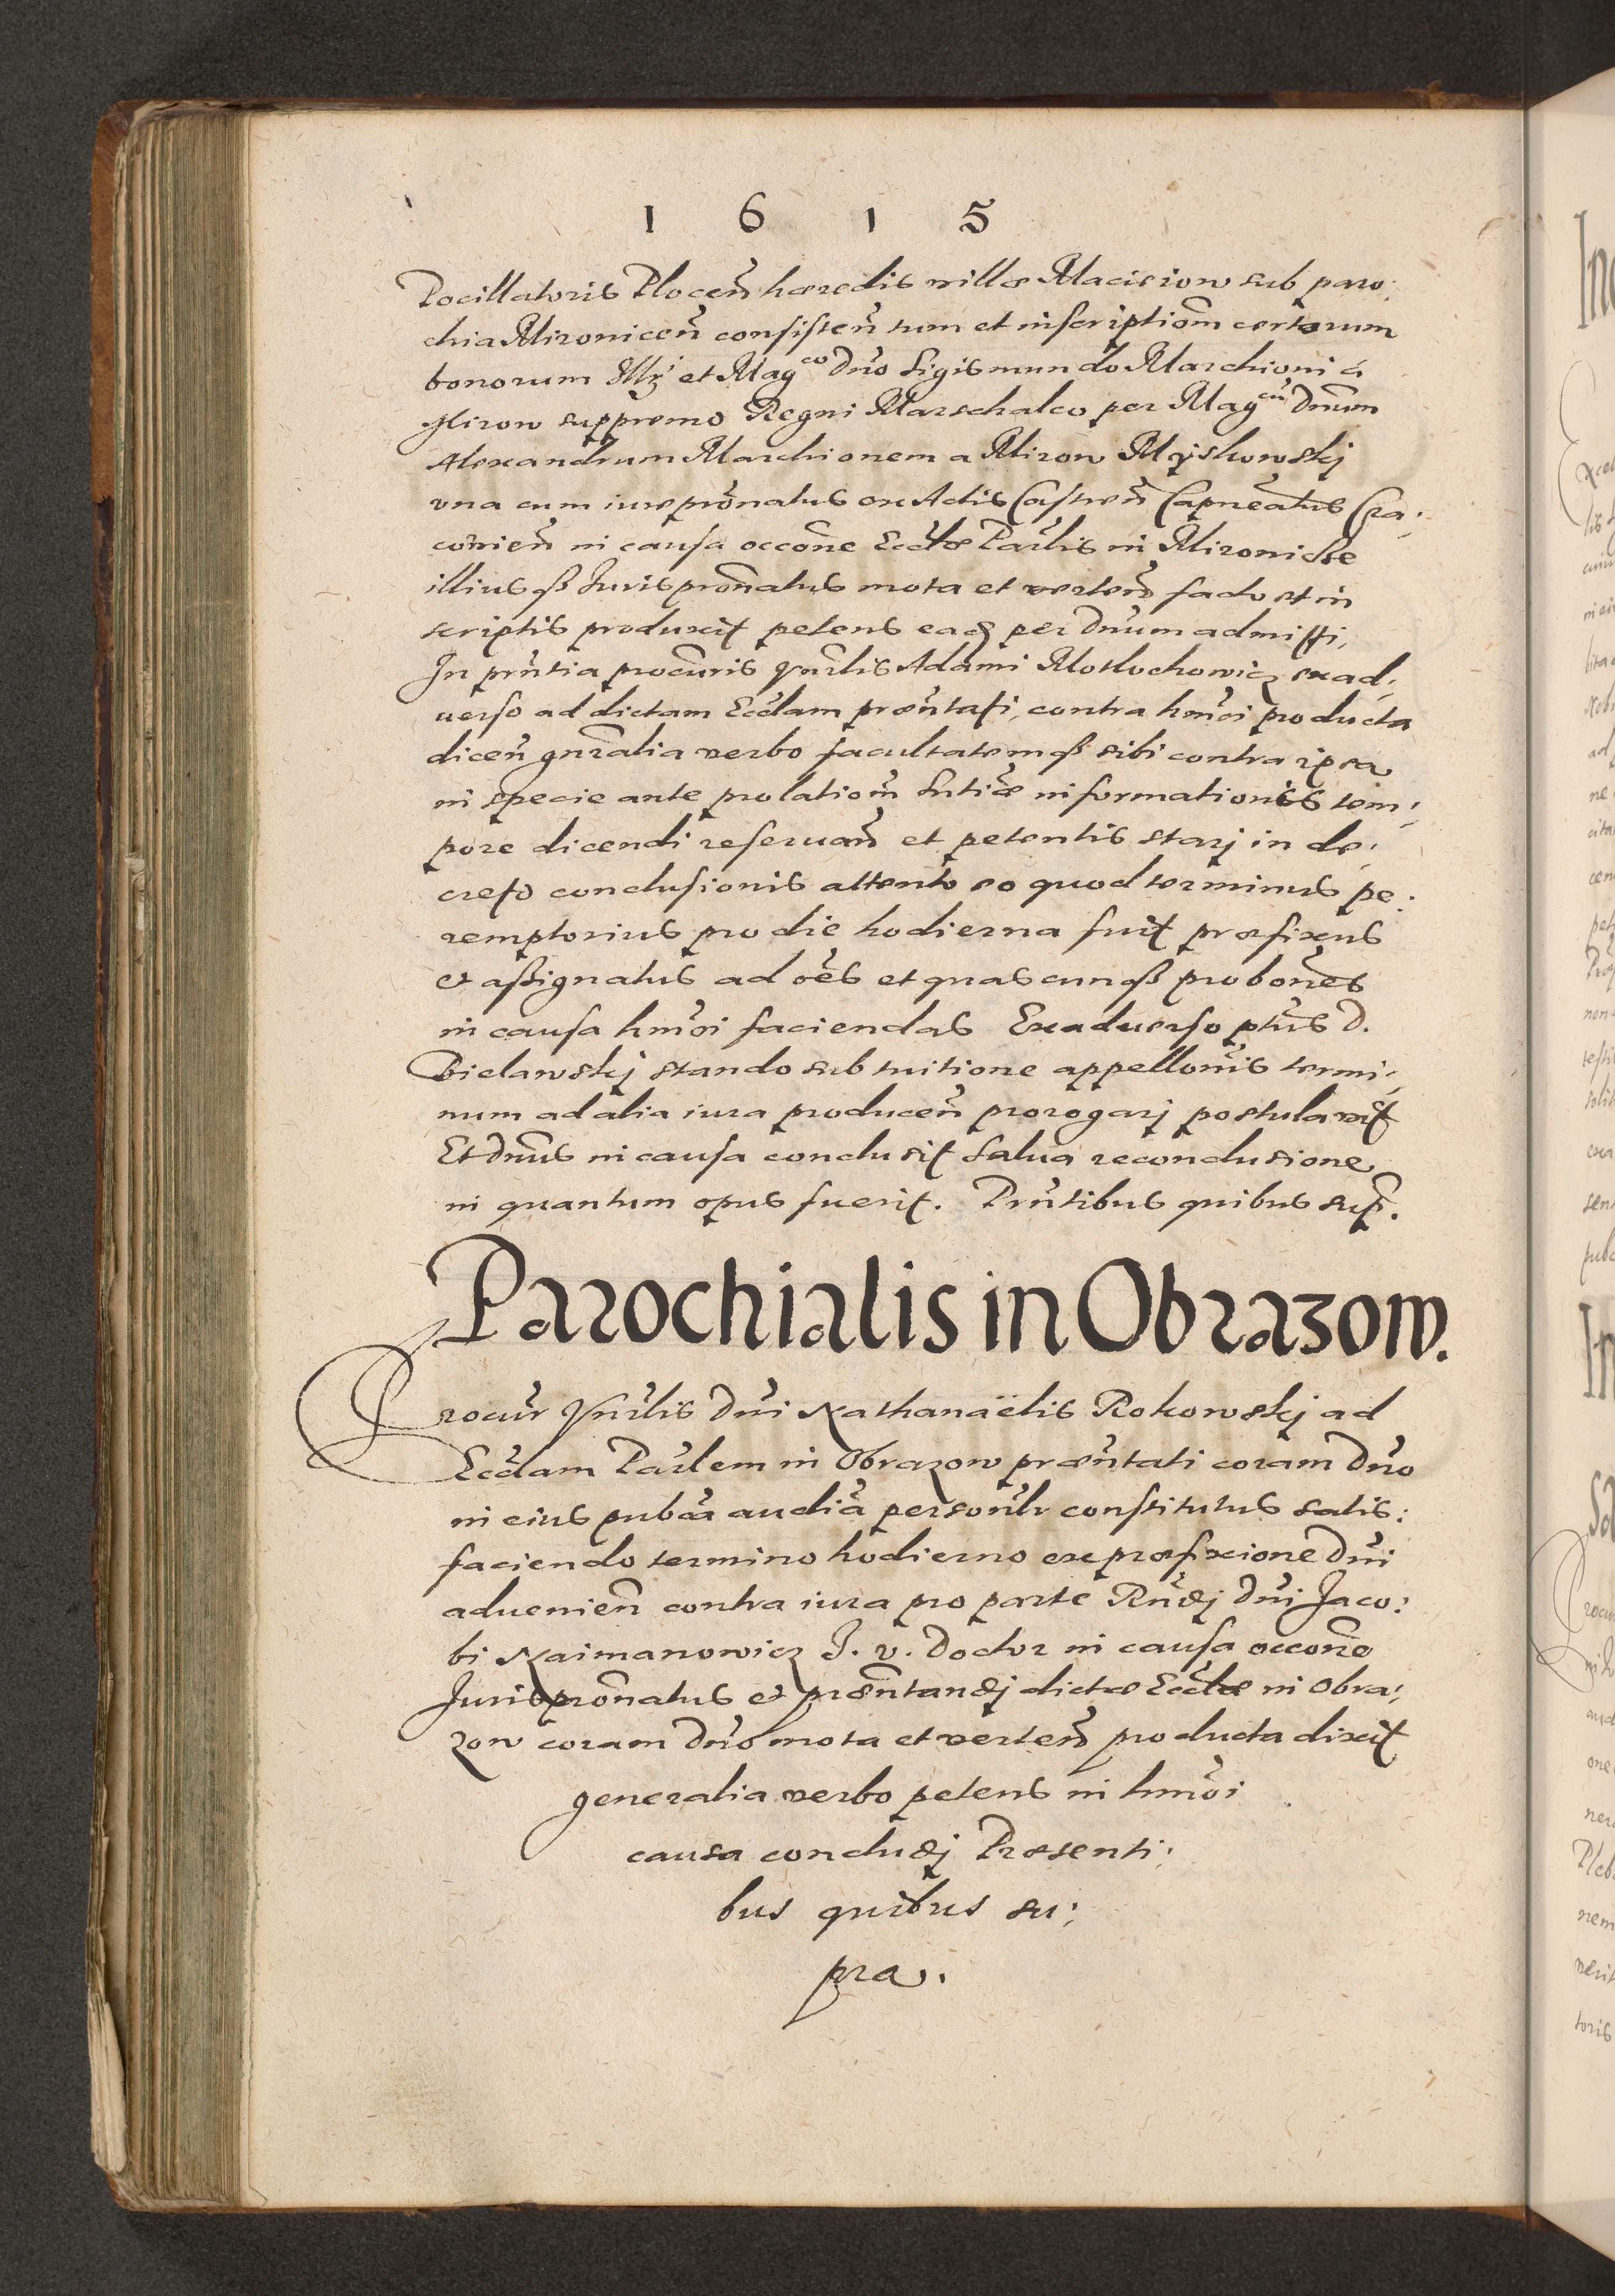 1 6 1 5
Pocillatoris Plocen̄ hæredis villæ Maciejow sub paro:
chia Mironicen̄ consisten̄ tum et inscriptiom̄ certorum
bonorum Illri et Mag^co Dno Sigismundo Marchioni á
Miron supremo Regni Marschalco per Mag^cu Dnum
Alexandrum Marchionem a Miron Myskowskj
vna cum iurepronatus ex Actis Castren̄ Capneatus Cra:
couien̄ in causa occone Eccłæ Parlis in Mironicze
illiusq̃ Jurispronatus mota et verten̄ facto et in
scriptis produxit petens eaq̃ per Dnum admissi,
In pntia procuris Vnrlis Adami Motluchowicz exad:
uerso ad dictam Eccłam præntati, contra hmoi producta
dicen̄ gnralia verbo facultatemq̃ sibi contra ipsa
in specie ante prolatiom̄ sntiæ informationis tem:
pore dicendi reseruan̄ et petentis starj in de:
creto conclusionis attento eo quod terminus pe:
remptorius pro die hodierna fuit præfixus
et assignatus ad oes et quascunq̃ probones
in causa hmoi faciendas Exaduerso ptus D.
Bielawskj stando sub tuitione appellonis termi:
num ad alia iura producen̄ prorogarj postulauit
Et Dnus in causa conclusit salua reconclusione
in quantum opus fuerit. Pntibus quibus sup.
Parochialis in Obrazow.
Procur Vnrlis Dni Nathanaëlis Rokowskj ad
Eccłam Parlem in Obrazow præntati coram Dno
in eius pubca audia personłr constitutus satis:
faciendo termino hodierno ex præfixione Dni
aduenien̄ contra iura pro parte Rndj Dni Jaco:
bi Naimanowicz J. v. Doctor in causa occone
Jurispronatus et præntandj dictæ Eccłæ in Obra:
zow coram Dno mota et verten̄ producta dixit
generalia verbo petens in hmoi
causa concludj Præsenti:
bus quibus su:
pra.